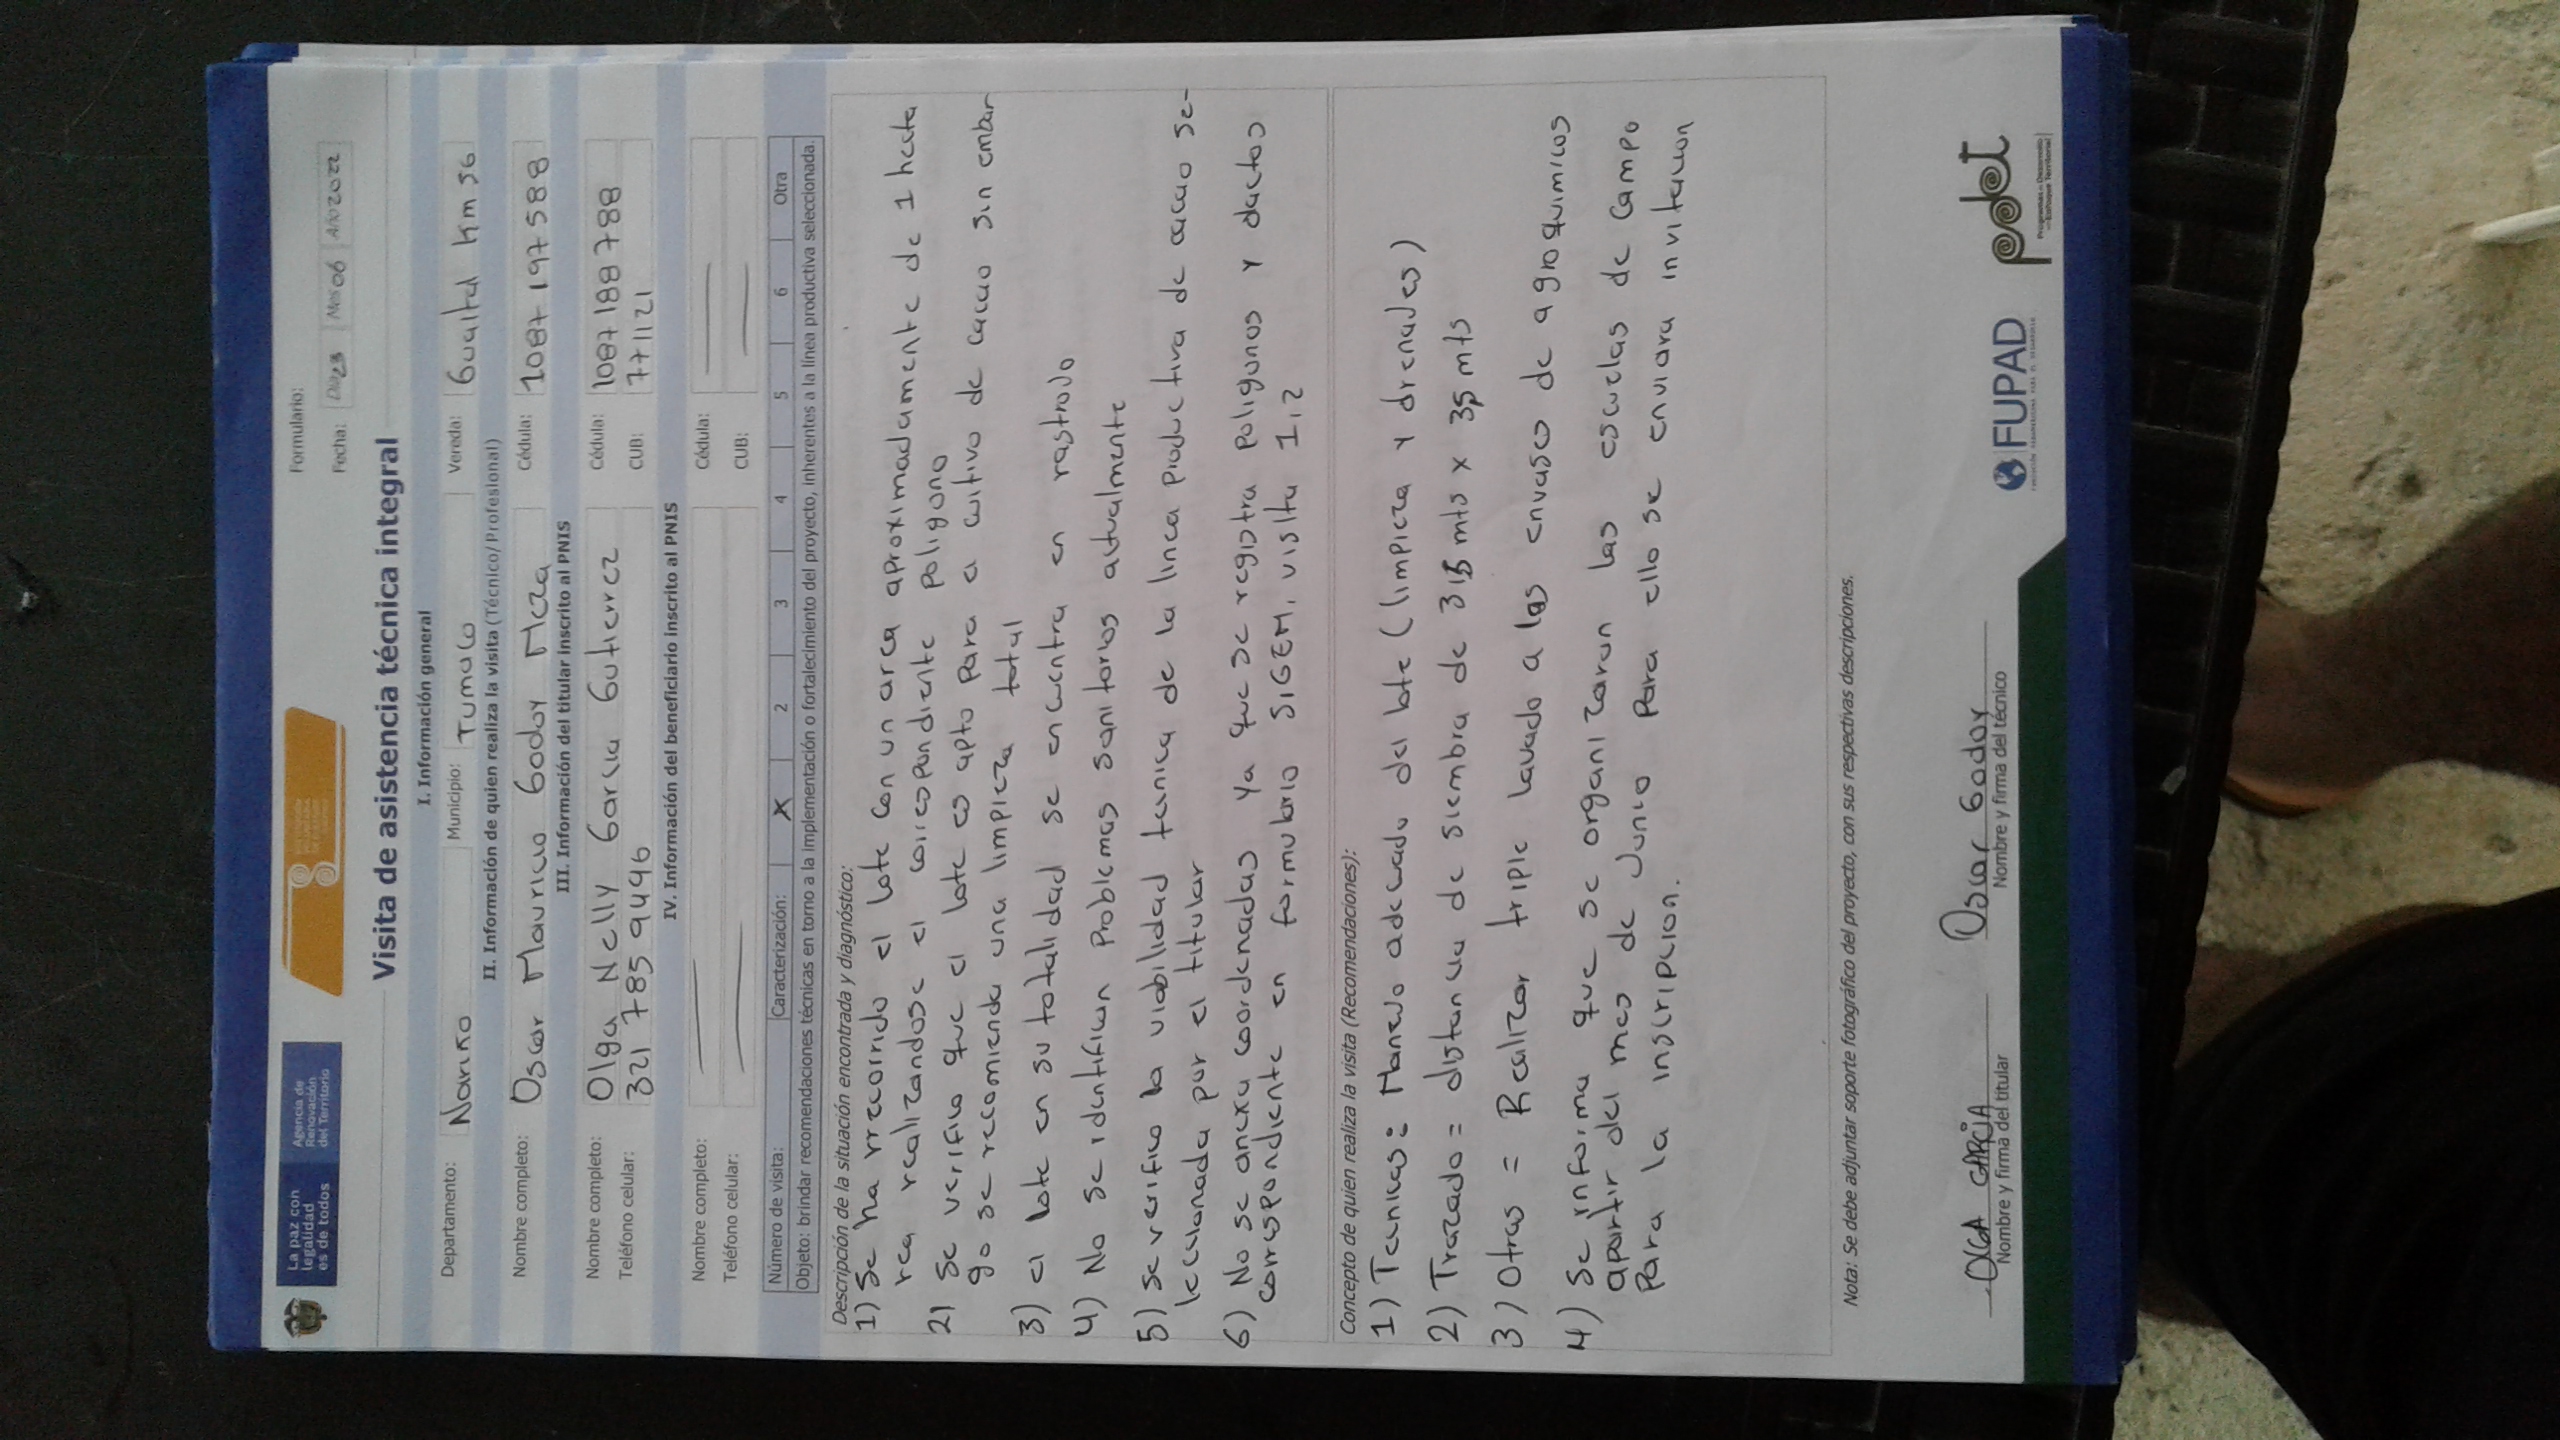 La paz con
legalidad
es de todos
Agencia de
Renovación
del Territorio
Formulario:
Fecha: Día 23 Mes 06 Año 2022
Visita de asistencia técnica integral
I. Información general
Departamento: Nariño Municipio: Tumaco Vereda: Gualtal Km 56
II. Información de quien realiza la visita (Técnico/Profesional)
Nombre completo: Oscar Mauricio Godoy Meza Cédula: 1087197588
III. Información del titular inscrito al PNIS
Nombre completo: Olga Nelly Garcia Gutierrez Cédula: 1087188788
Teléfono celular: 321 785 9496 CUB: 771121
IV. Información del beneficiario inscrito al PNIS
Nombre completo: Cédula:
Teléfono celular: CUB:
Número de visita: Caracterización: X 2 3 4 5 6 Otra
Objeto: brindar recomendaciones técnicas en torno a la implementación o fortalecimiento del proyecto, inherentes a la línea productiva seleccionada.
Descripción de la situación encontrada y diagnóstico:
1) Se ha rrecorrido el lote con un area aproximadamente de 1 hecta
rea realizandose el correspondiente poligono
2) se verifico que el lote es apto para el cultivo de cacao sin embar
go se recomienda una limpieza total
3) el lote en su totalidad se encuentra en rastrojo
4) No se identifican problemas sanitarios actualmente
5) se verifico la viabilidad tecnica de la linea productiva de cacao se-
leccionada por el titular
6) No se anexa coordenadas ya que se registra poligonos y dactos
correspondiente en formulario SIGEM, visita 1,2
Concepto de quien realiza la visita (Recomendaciones):
1) Tecnicas: Manejo adecuado del lote (limpieza y drenajes)
2) Trazado = distancia de siembra de 3,5 mts x 3,5 mts
3) Otras = Realizar triple lavado a los envases de agroquimicos
4) Se informa que se organizaran las escuelas de campo
apartir del mes de Junio para ello se enviara invitacion
para la inscripcion.
Nota: Se debe adjuntar soporte fotográfico del proyecto, con sus respectivas descripciones.
OLGA GARCIA Oscar Godoy
Nombre y firma del titular Nombre y firma del técnico
FUPAD
pdet
Programas de Desarrollo
con Enfoque Territorial